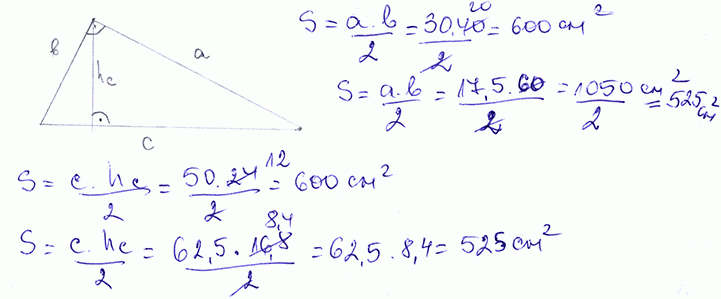 b
a
hc
c
S = a.b/2 = 30.40/2 20 = 600 см²
S = a.b/2 = 17,5.60/2 = 1050 см²/2 = 525 см²
S = c.hc/2 = 50.24/2 12 = 600 см²
S = c.hc/2 = 62,5.16,8/2 8,4 = 62,5.8,4 = 525 см²